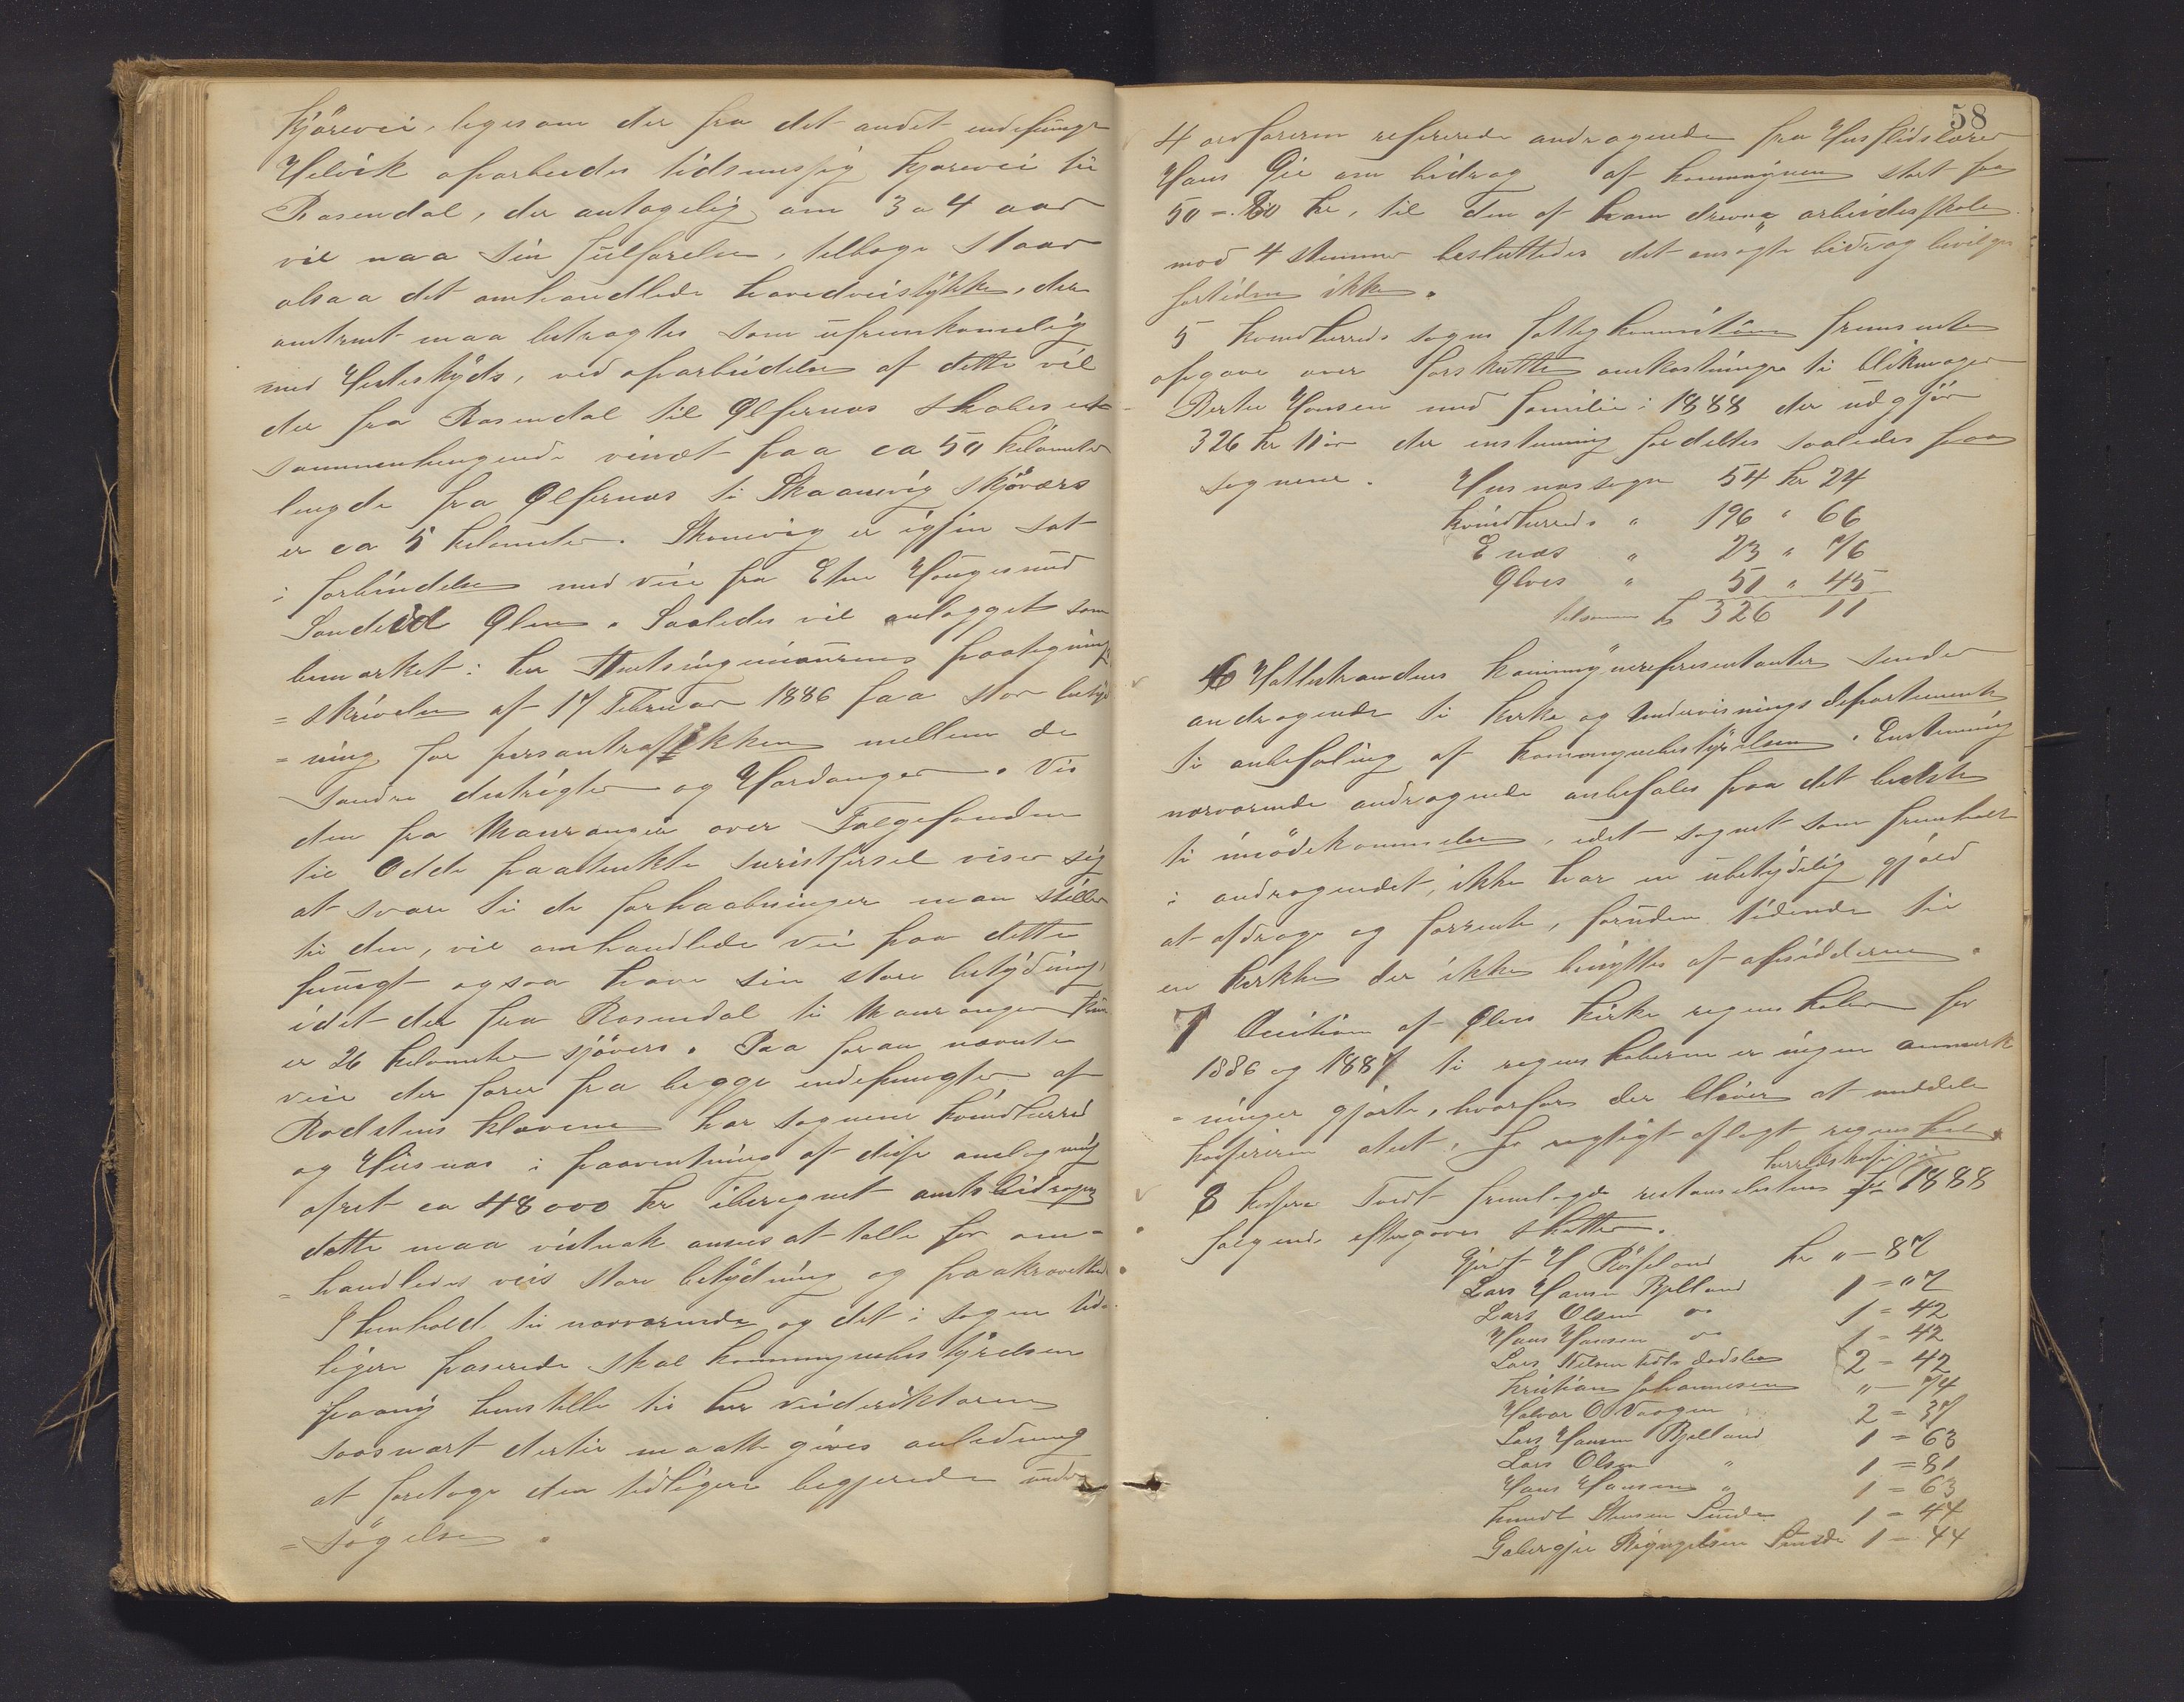 Kjörevei, ligesom der fra det andet endepungt
Helvik oparbeides tidsmessig kjorevei til
Rosendal, der antagelig om 3 a 4 aar
vil naa sin fulförelse, tilbage staar
alsaa det omhandlede hovedveistykke, der
omtrent maa betragtes som ufremkomelig
med Hesteskyds, ved oparbeidelse af dette vil
der fra Rosendal til Ølfernes skabes et
sammenhengende veinet paa ca 50 kilometer
lengde fra Ølfernes til Skaanevig sjöværs
er ca 5 kilometer. Skonevig er igjen sat
i forbindelse med veie fra Etne Haugesund
Sandeid Ølen. Saaledes vil anlægget som
bemærket i her Amtsingeniørens paategnings
= skrivelse af 17 Februar 1886 faa stor betyd
= ning for persontrafikken mellem de
søndre destrigter og Hardanger. Vis
den fra Mauranger over Folgefonden
til Odde paatenkte turistfersel viser sig
at svare til de forhaabninger man stiller
til den, vil omhandlede vei paa dette
pungt ogsaa have sin store betydning,
idet der fra Rosendal til Mauranger kun
er 26 kilometer sjövers. Paa foran nævnte
veie der förer fra begge endepungter af
Rodstens kloven har sognene Kvindherred
og Husnæs i paaventning af disse anlægning
ofret ca 48000 kr iberegnet amtsbidragen
dette maa vistnok ansees at talle for om=
= handledes veis store betydning og paakrævethed
I henhold til nærværende og det i sagen tid-
ligere paserede skal kommunebestyrelsen
paany henstille til her veidirektøren
saasnart dertil maatte gives anledning
at foretage den tidligere begjerede under
= søgelse.
58
4 ordføreren refererede andragende fra Husflidslærer
Hans Øie om bidrag af kommunen stort fra
50 = 80 kr, til den af ham drevne arbeidsskole.
mod 4 stemmer besluttedes det ansøgte bidrag bevilges
fortiden ikke.
5 Kvindherreds sogns fattigkommission fremsendte
opgave over forskutte omkostninger til Blikmager
Berte Hansen med familie i 1888 der udgjör
326 kr 11 ör der enstemmig fordeltes saaledes paa
sognene. Husnæs sogn 54 kr 24
Kvindherreds " 196 " 66
Enæs " 23 " 76
Ølves " 51 " 45
tilsammen kr 326 11
6 Hatlestrandens kommunerepresentanter sender
andragende til kirke og Undervisnings departementet
til anbefaling af kommunebestyrelsen. Enstemmig
nærværende andragende anbefales paa det bedste
til imödekommelse, idet sognet som fremholdt
i andragendet, ikke har en ubetydelig gjæld
at afdrage og forrente, foruden tidende til
en kirke der ikke benyttes af opsidderne.
7 Decition af Ølves kirke regnskaber for
1886 og 1887 til regnskaberne er ingen anmerk
= ninger gjorte, hvorfor der bliver at meddele
kassereren atest, for rigtigt aflagt regnskab.
herredskasse
8 kaserer Tvedt fremlagde restanselisten for 1888
følgende eftergaves skatter.
Gjert H Röseland kr " – 87
Lars Hansen Bjelland 1 = 07
Lars Olsen do 1 = 42
Hans Hansen do 1 = 42
Lars Nilsen Tofts dødsbo 2 = 42
Kristian Johannesen " – 74
Halvor O Vaagen 2 = 37
Lars Hansen Bjelland 1 = 63
Lars Olsen " 1 = 81
Hans Hansen " 1 = 63
Knudt Stensen Sunde 1 = 44
Gabergjer Bryngelsen Sunde 1 – 44